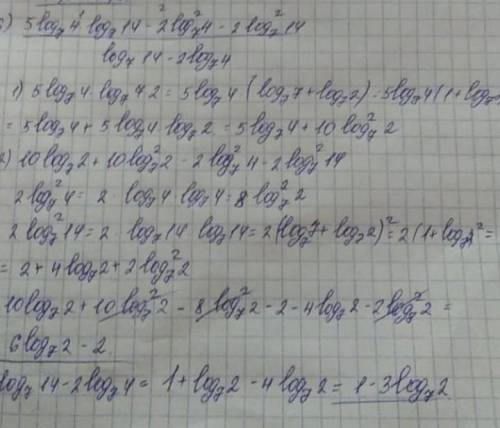 5log₇4·log₇14 - 2log₇²4 - 2log₇²14
log₇14 - 2log₇4
1) 5log₇4·log₇72 = 5log₇4(log₇7+log₇2) = 5log₇4(1+log₇
= 5log₇4 + 5log₇4·log₇2 = 5log₇4 + 10log₇²2
10log₇2 + 10log₇²2 - 2log₇²4 - 2log₇²14
2log₇²4 = 2·log₇4·log₇4 = 8log₇²2
2log₇²14 = 2·log₇14·log₇14 = 2(log₇7+log₇2)² = 2(1+log₇2)² =
= 2 + 4log₇2 + 2log₇²2
10log₇2 + 10log₇²2 - 8log₇²2 - 2 - 4log₇2 - 2log₇²2 =
6log₇2 - 2
log₇14 - 2log₇4 = 1 + log₇2 - 4log₇2 = 1 - 3log₇2